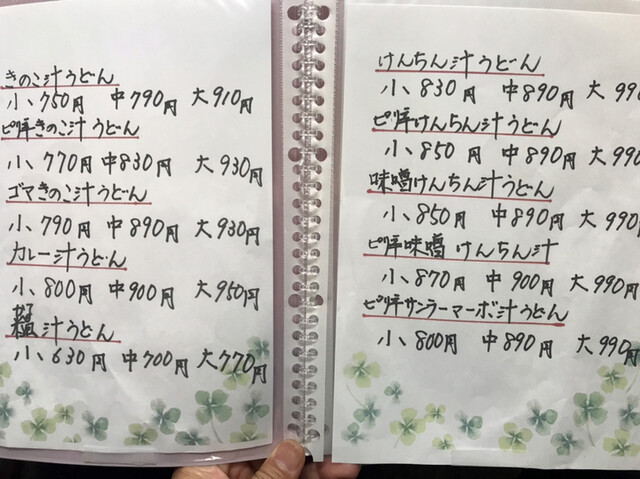 きのこ汁うどん
小、750円 中790円 大910円
ピリ辛きのこ汁うどん
小、770円 中830円 大930円
ゴマきのこ汁うどん
小、790円 中890円 大930円
カレー汁うどん
小、800円 中900円 大950円
汁うどん
小、630円 中700円 大770円
けんちん汁うどん
小、830円 中890円 大990
ピリ辛けんちん汁うどん
小、850円 中890円 大990
味噌けんちん汁うどん
小、850円 中890円 大990円
ピリ辛味噌けんちん汁
小、870円 中900円 大990円
ピリ辛サンラーマーボ汁うどん
小、800円 中890円 大990円